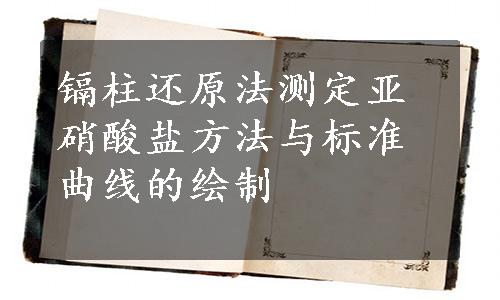 镉柱还原法测定亚
硝酸盐方法与标准
曲线的绘制